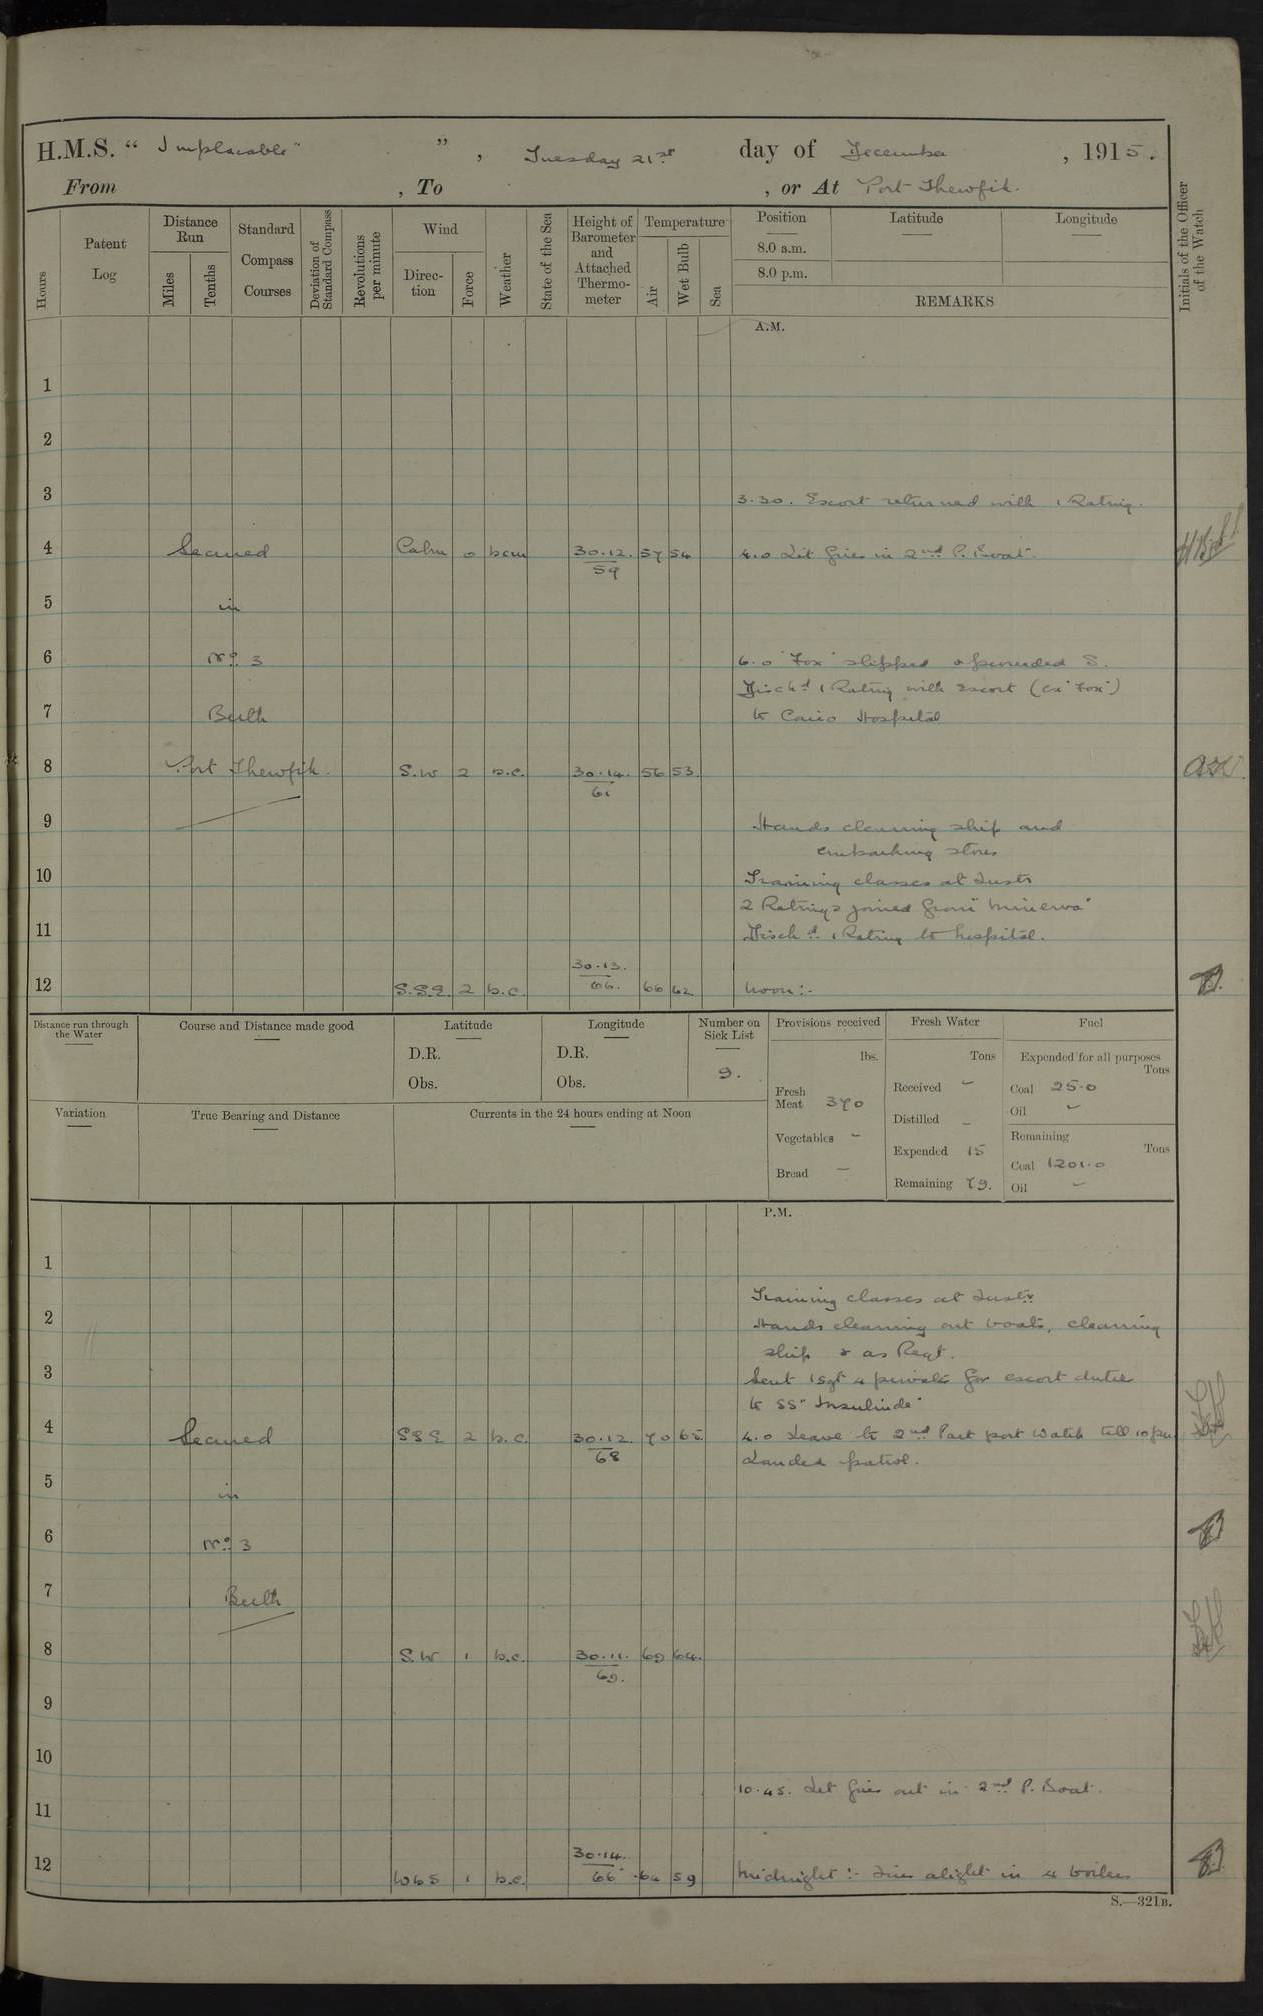 H.M.S. “ Implacable ” , Tuesday 21st day of December , 1915.
From , To , or At Port Thewfik.
Hours
Patent Log
Distance Run
Miles
Tenths
Standard Compass Courses
Deviation of Standard Compass
Revolutions per minute
Wind
Direc-tion
Force
Weather
State of the Sea
Height of Barometer and Attached Thermo-meter
Temperature
Air
Wet Bulb
Sea
Position
8.0 a.m.
8.0 p.m.
Latitude
Longitude
REMARKS
Initials of the Officer of the Watch
A.M.
1
2
3
3.30. Escort returned with 1 Rating.
4 Secured Calm 0 bcm 30.12. 57 54 4.0 Lit fires in 2nd P. Boat.
59
5 in
6 No. 3 6.0 "Fox" slipped & proceeded S.
Disch'd 1 Rating with escort (ex "Fox")
7 Berth to Cairo Hospital
8 Port Thewfik. S.W 2 b.c. 30.14. 56 53
61
9 Hands cleaning ship and
embarking stores
10 Training classes at Instn
2 Ratings joined from "Minerva"
11 Disch'd 1 Rating to hospital.
30.13.
12 S.S.E. 2 b.c. 66. 66 62 Noon:-
Distance run through the Water
Course and Distance made good
Latitude
D.R.
Obs.
Longitude
D.R.
Obs.
Number on Sick List
9.
Provisions received
lbs.
Fresh Meat 370
Vegetables -
Bread -
Fresh Water
Tons
Received -
Distilled -
Expended 15
Remaining 79.
Fuel
Expended for all purposes
Tons
Coal 25.0
Oil -
Remaining
Tons
Coal 1201.0
Oil -
Variation
True Bearing and Distance
Currents in the 24 hours ending at Noon
P.M.
1
Training classes at Instn
2 Hands cleaning out boats, cleaning
ship & as Reqt.
3 Sent 1 Sgt 4 privates for escort duties
to SS "Insulinde"
4 Secured SSE 2 b.c. 30.12. 70 65 4.0 Leave to 2nd Part port Watch till 10 pm
68 Landed patrol.
5 in
6 No. 3
7 Berth
8 S.W 1 b.c. 30.11. 69 64.
69.
9
10
10.45. Let fires out in 2nd P. Boat.
11
30.14.
12 WbS 1 b.c. 66 64 59 Midnight:- Fires alight in 4 boilers
S.—321B.